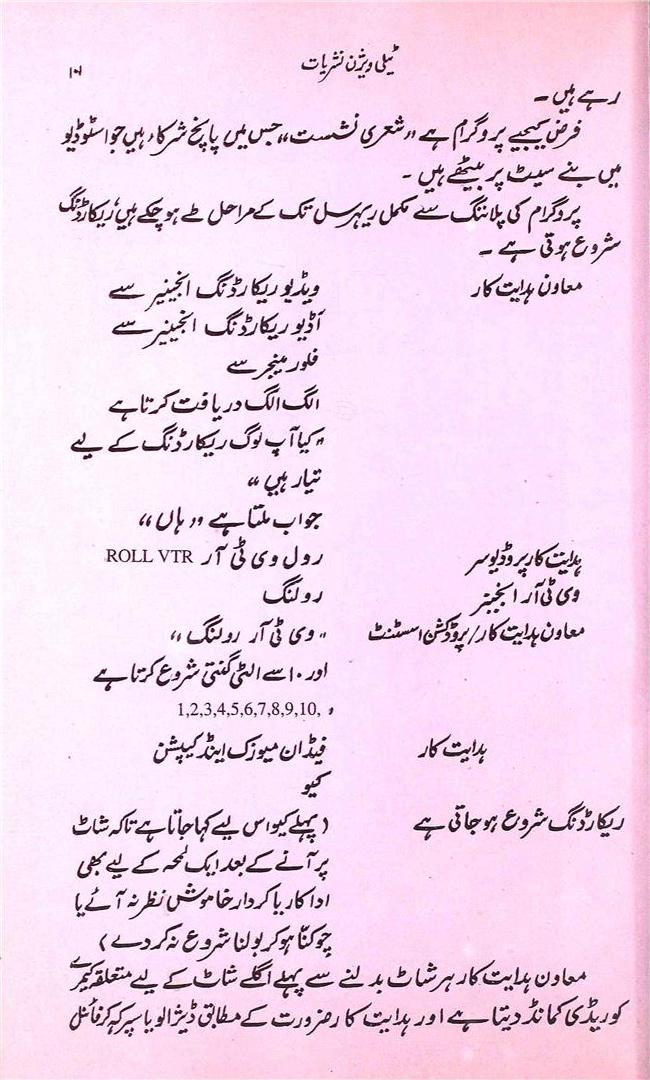 ٹیلی ویژن نشریات
۱۰۱
رہے ہیں ۔
فرض کیجیے پروگرام ہے ”شعری نشست“ جس میں پانچ شرکاء ہیں جو اسٹوڈیو
میں بنے سیٹ پر بیٹھے ہیں ۔
پروگرام کی پلاننگ سے مکمل ریہرسل تک کے مراحل طے ہو چکے ہیں، ریکارڈنگ
شروع ہوتی ہے ۔
معاون ہدایت کار ویڈیو ریکارڈنگ انجینیر سے
آڈیو ریکارڈنگ انجینیر سے
فلور مینجر سے
الگ الگ دریافت کرتا ہے
”کیا آپ لوگ ریکارڈنگ کے لیے
تیار ہیں“
جواب ملتا ہے ”ہاں“
ہدایت کار پروڈیوسر رول وی ٹی آر ROLL VTR
وی ٹی آر انجینیر رولنگ
معاون ہدایت کار/پروڈکشن اسسٹنٹ ”وی ٹی آر رولنگ“
اور ۱۰ سے الٹی گنتی شروع کرتا ہے
1,2,3,4,5,6,7,8,9,10, ،
ہدایت کار فیڈ ان میوزک اینڈ کیپشن
کیو
ریکارڈنگ شروع ہو جاتی ہے (پہلے کیو اس لیے کہا جاتا ہے تاکہ شاٹ
پر آنے کے بعد ایک لمحہ کے لیے بھی
اداکار یا کردار خاموش نظر نہ آئے یا
چوکنّا ہو کر بولنا شروع نہ کر دے)
معاون ہدایت کار ہر شاٹ بدلنے سے پہلے اگلے شاٹ کے لیے متعلقہ کیمرے
کو ریڈی کمانڈ دیتا ہے اور ہدایت کار ضرورت کے مطابق ڈیزالو یا سپر کہہ کر فائنل